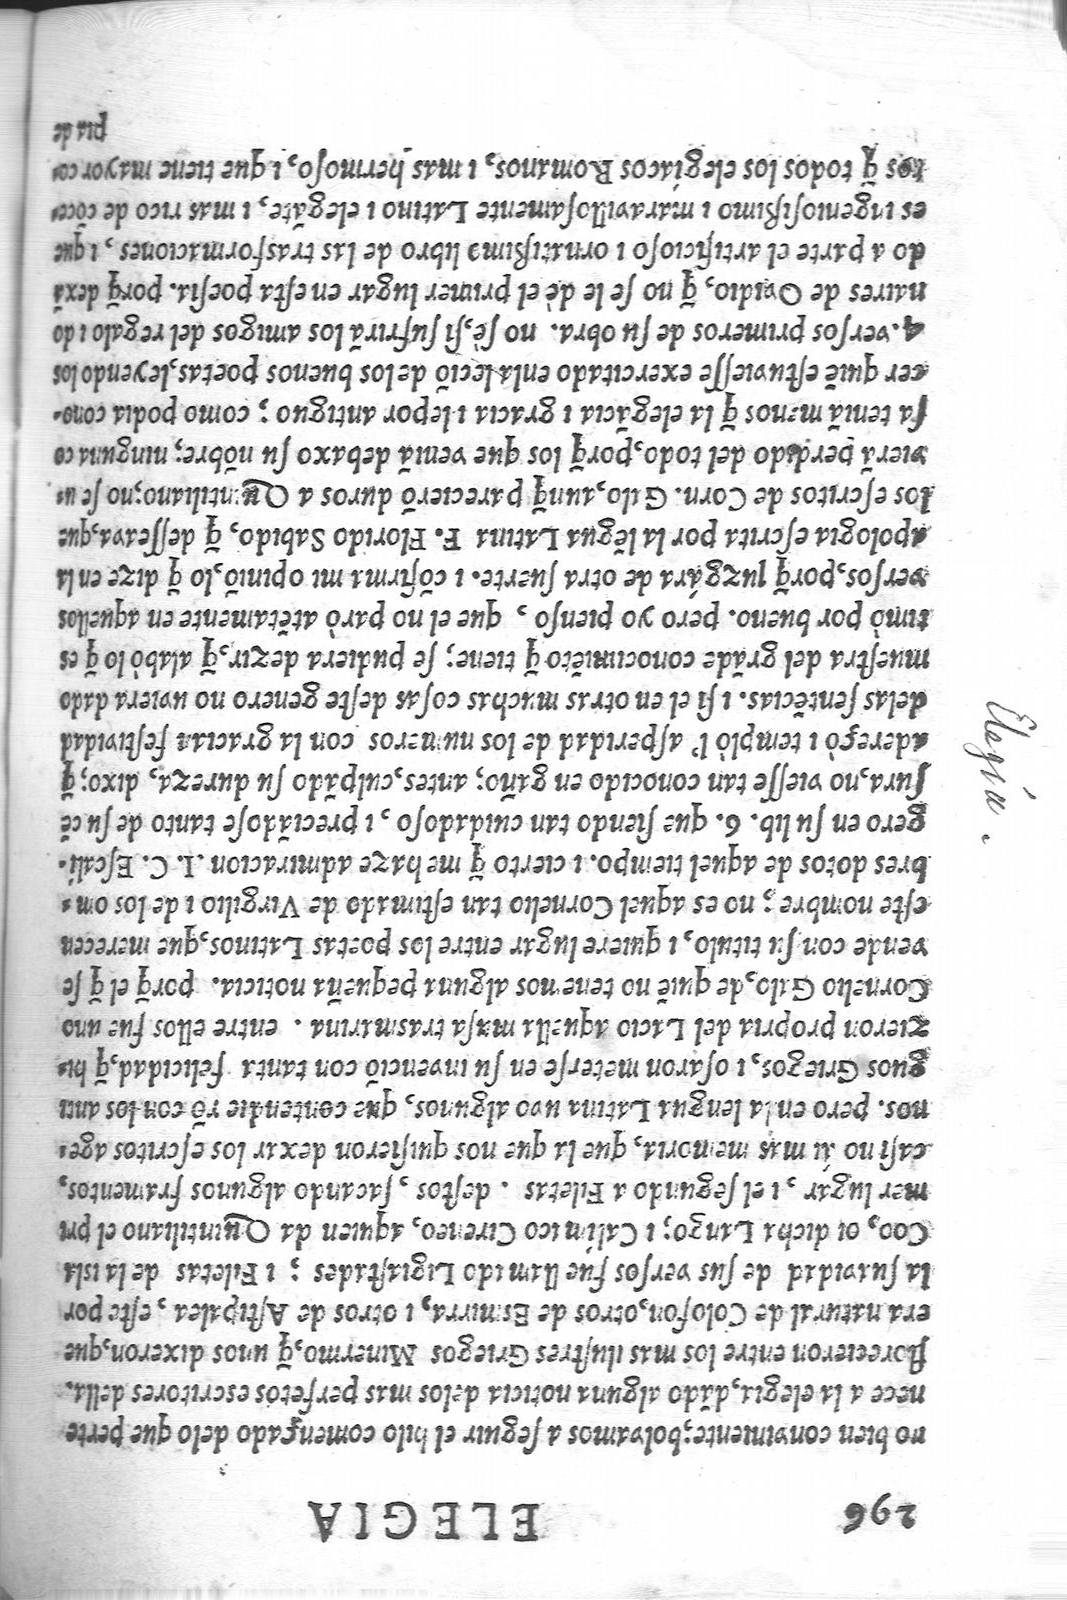 296 ELEGIA
no bien conviniente; bolvamos a ſeguir el hilo començado delo que perte
nece a la elegia, dãdo alguna noticia delos mas perfetos escritores della.
florecieron entre los mas iluſtres Griegos Minermo, q̃ unos dixeron, que
era natural de Colofon, otros de Esmirra, i otros de Aſtipalea, eſte por
la ſuavidad de ſus verſos fue llamado Ligiaſtades ; i Filetas de la isla
Coo, oi dicha Lango; i Calímico Cireneo, aquien da Quintiliano el pri
mer lugar, i el ſegundo a Filetas . deſtos , ſacando algunos framentos,
caſi no ái mas memoria, que la que nos quiſieron dexar los eſcritos age-
nos. pero en la lengua Latina uvo algunos, que contendierõ con los anti
guos Griegos, i oſaron meterſe en ſu invenciõ con tanta felicidad, q̃ hi-
zieron propria del Lacio aquella maſa traſmarina . entre ellos fue uno
Cornelio Galo, de quiẽ no tenemos alguna pequeña noticia. porq̃ el q̃ ſe
vende con ſu titulo, i quiere lugar entre los poetas Latinos, que merecen
eſte nombre ; no es aquel Cornelio tan eſtimado de Virgilio i de los om-
bres dotos de aquel tiempo. i cierto q̃ me haze admiracion .I. C. Eſcali-
gero en ſu lib. 6. que ſiendo tan cuidadoſo , i preciãdoſe tanto de ſu cẽ
ſura, no vieſſe tan conocido engaño; antes, culpãdo ſu dureza, dixo; q̃
adereçò i templò l' aſperidad de los numeros con la gracia i feſtividad
delas ſentẽcias. i ſi el en otras muchas coſas deſte genero no uviera dado
mueſtra del grãde conocimiẽto q̃ tiene; ſe pudiera dezir, q̃ alabò lo q̃ es
timò por bueno. pero yo pienſo , que el no parò atẽtamente en aquellos
verſos, porq̃ luzgára de otra ſuerte. i cõfirma mi opiniõ, lo q̃ dize en la
apologia eſcrita por la lẽgua Latina F. Florido Sabido, q̃ deſſeava, que
los eſcritos de Corn. Galo, aunq̃ parecierõ duros a Quintiliano; no ſe u-
vierã perdido del todo, porq̃ los que venia debaxo ſu nõbre; ninguna co
ſa teniã menos q̃ la elegãcia i gracia i lepor antiguo ; como podia cono-
cer quiẽ eſtuvieſſe exercitado enla leciõ delos buenos poetas, leyendo los
4. verſos primeros de ſu obra. no ſé, ſi ſufrirã los amigos del regalo i do
naires de Ovidio, q̃ no ſe le dè el primer lugar en eſta poeſia. porq̃ dexã
do a parte el artificioſo i ornatiſsimo libro de las trasformaciones , i que
es ingenioſiſsimo i maravilloſamente Latino i elegãte, i mas rico de cõce-
tos q̃ todos los elegíacos Romanos, i mas hermoſo, i que tiene mayor co
pia de
Elegía.